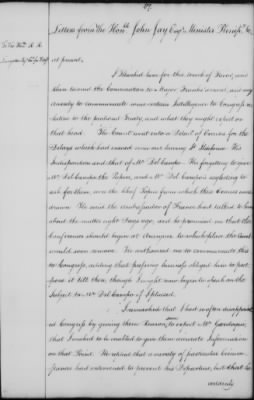 Letters from the Hon.ble John Jay Esq.r Minister Plenip.o &c
To the Hon. R. R.
Livingston
at present.
I thanked him for this mark of Favor, and
then turned the Conversation to Major Franks's errand, and my
anxiety to communicate some certain Intelligence to Congress
relative to the proposed Treaty, and what they might expect on
that head. The Count went into a Detail of Excuses for the
Delays which had ensued since our leaving St Ildephonso. His
Indisposition and that of Mr Del Campo. His forgetting to give
Mr Del Campo the Papers, and Mr Del Campo's neglecting to
ask for them, were the Chief Topics from which these Excuses were
drawn. He said the Ambassador of France had talked to him
about the matter eight Days ago, and he promised me that the
Conferences should begin at Aranjues to which place the Court
would soon remove. He authorised me to communicate this
to Congress, adding that pressing business obliged him to post-
pone it till then, though I might now begin to speak on the
Subject to Mr Del Campo if I pleased.
I remarked that I had so often disappoint-
ed Congress by giving them Reason to expect Mr Gardoqui,
that I wished to be enabled to give them accurate Information
on that Point. He replied that a variety of particular Circum-
stances had intervened to prevent his Departure, but that he
certainly